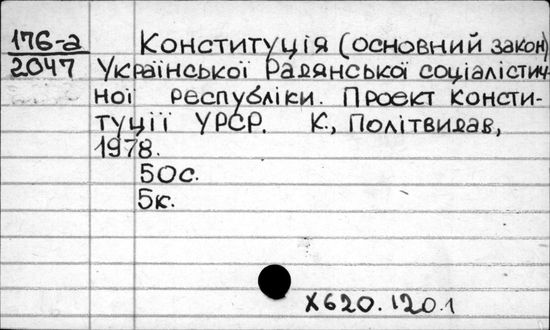 176-а
2047
Конституція (основний закон)
Української Радянської соціалістич
ної республіки. Проект консти-
туції УРСР. К., Політвидав,
1978.
50с.
5к.
Х620.120.1